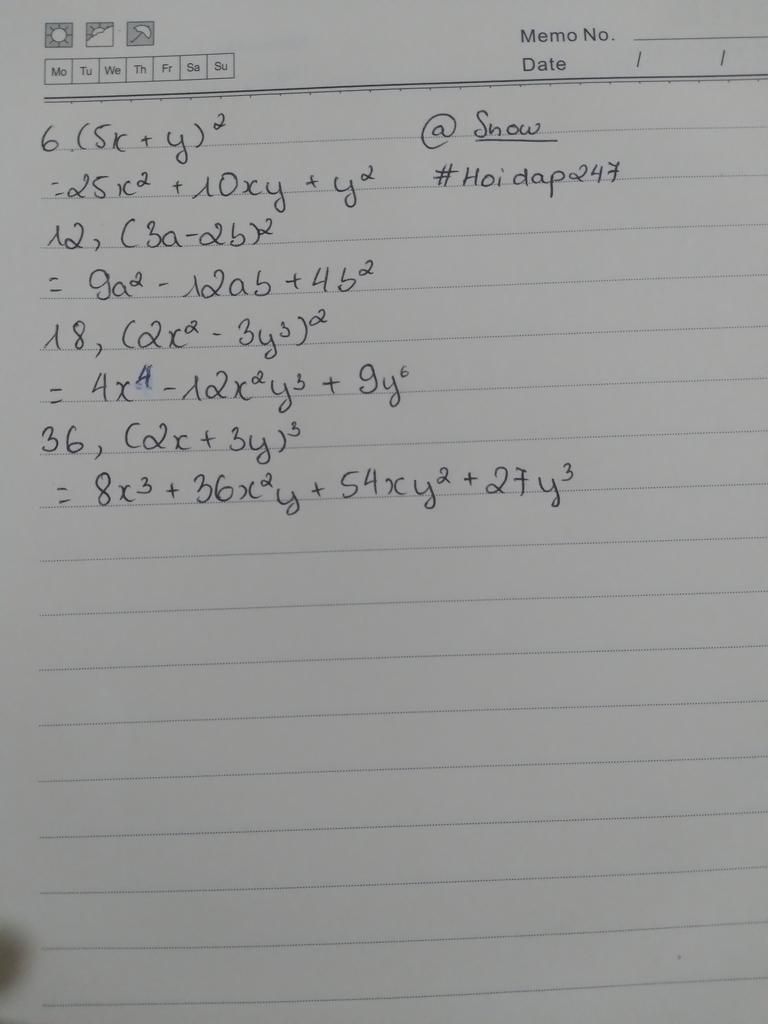 Memo No.
Mo Tu We Th Fr Sa Su
Date / /
6.(5x + y)²
@ Snow
=25x² + 10xy + y²
#Hoidap247
12, (3a-2b)²
= 9a² - 12ab + 4b²
18, (2x² - 3y³)²
= 4x⁴ - 12x²y³ + 9y⁶
36, (2x + 3y)³
= 8x³ + 36x²y + 54xy² + 27y³